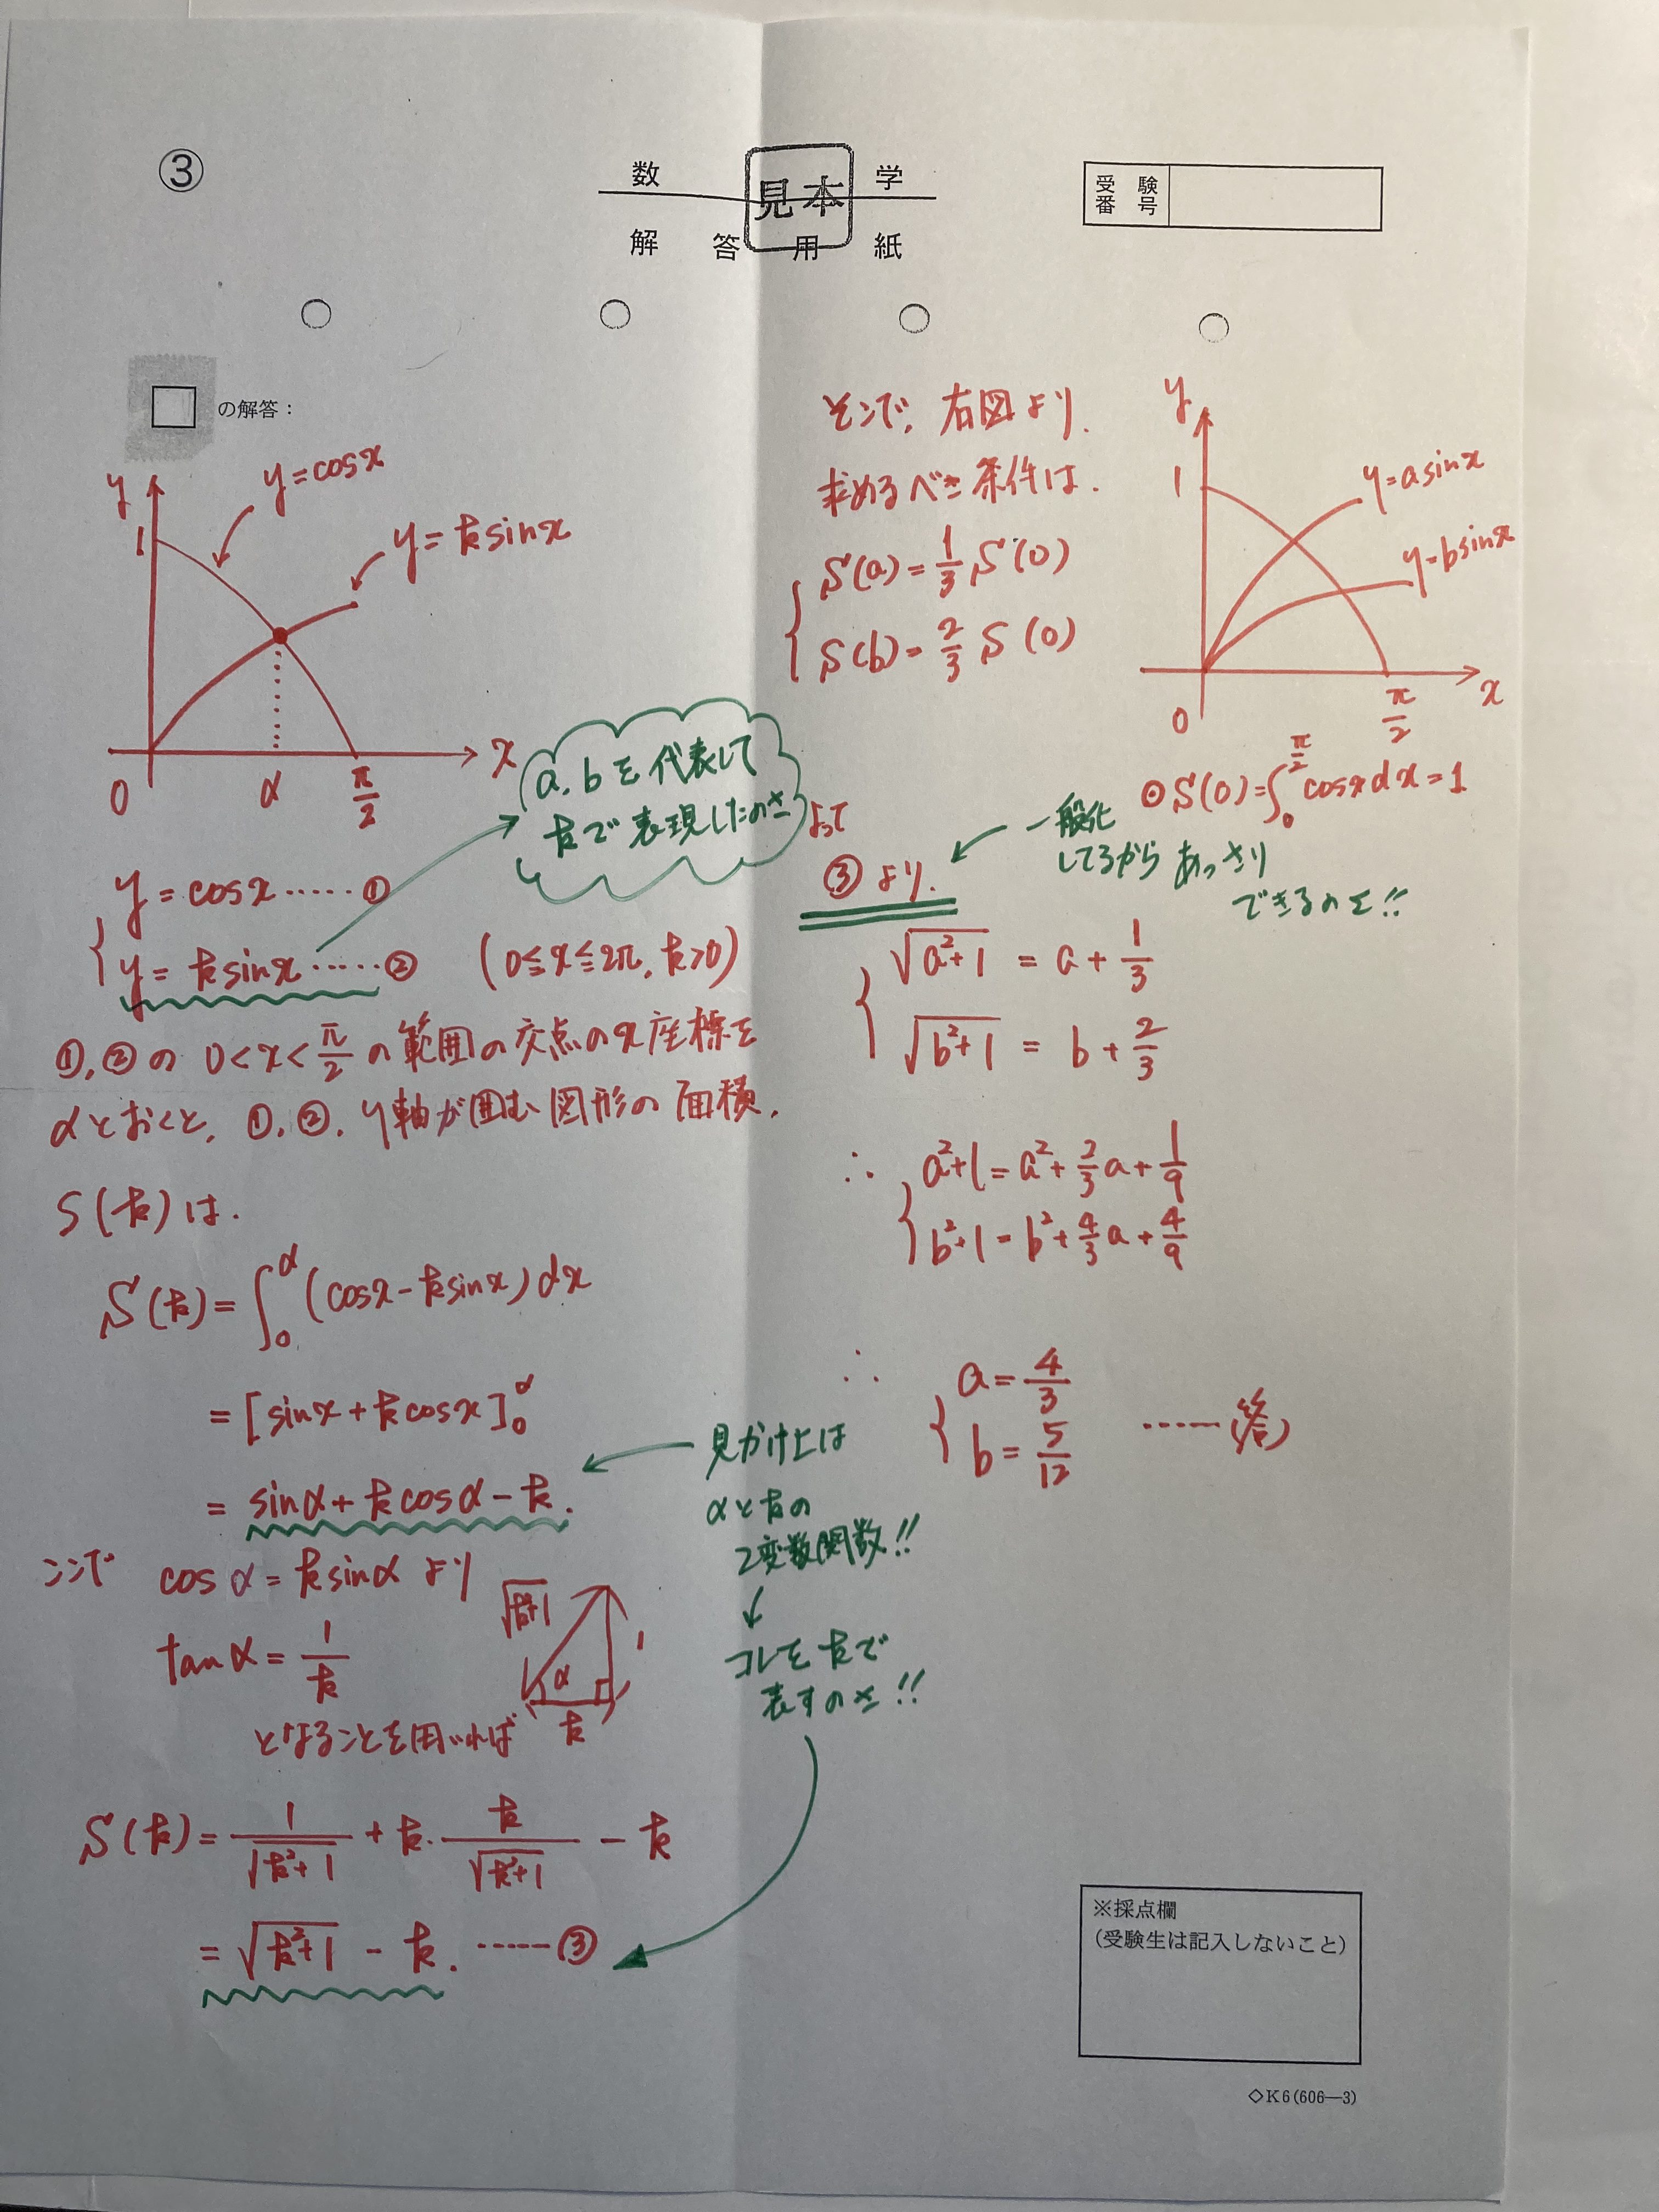 ③
数 学
見本
解 答 用 紙
受 験
番 号
□ の解答：
y
1
y=cosx
y=ksinx
0
α
π/2
x
a,bを代表して
kで表現したのさ
{ y=cosx……①
y=ksinx……② (0≦x≦2π, k>0)
①,②の 0<x<π/2 の範囲の交点のx座標を
αとおくと, ①,②, y軸が囲む図形の面積,
S(k)は.
S(k)=∫₀^α (cosx-ksinx)dx
=[sinx+kcosx]₀^α
=sinα+kcosα-k.
見かけ上は
αとkの
2変数関数!!
↓
コレをkで
表すのさ!!
ココで cosα=ksinα より
tanα=1/k
となることを用いれば
√k²+1
1
α
k
S(k)=1/√k²+1 + k・k/√k²+1 - k
=√k²+1 - k. ……③
そこで, 右図より,
求めるべき条件は.
{ S(a)=1/3 S(0)
S(b)=2/3 S(0)
y
1
y=asinx
y=bsinx
0
π/2
x
⊙S(0)=∫₀^{π/2} cosxdx=1
よって
③より.
一般化
してるから あっさり
できるのさ!!
{ √a²+1 = a+1/3
√b²+1 = b+2/3
∴ { a²+1=a²+2/3a+1/9
b²+1=b²+4/3a+4/9
∴ { a=4/3
b=5/12 ……(答)
※採点欄
(受験生は記入しないこと)
◇K6(606—3)